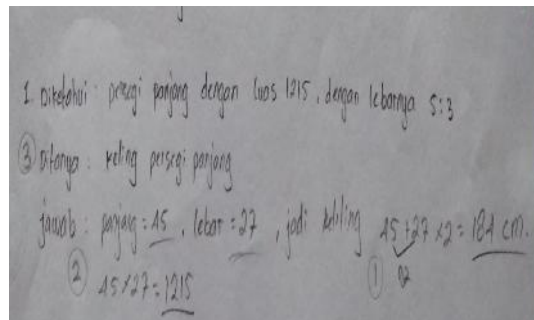 1. Diketahui : persegi panjang dengan luas 1215, dengan lebarnya 5:3
③ Ditanya : keling persegi panjang
jawab : panjang = 45, lebar = 27, jadi keliling 45 + 27 x 2 = 184 cm.
② 45 x 27 = 1215 ① 92